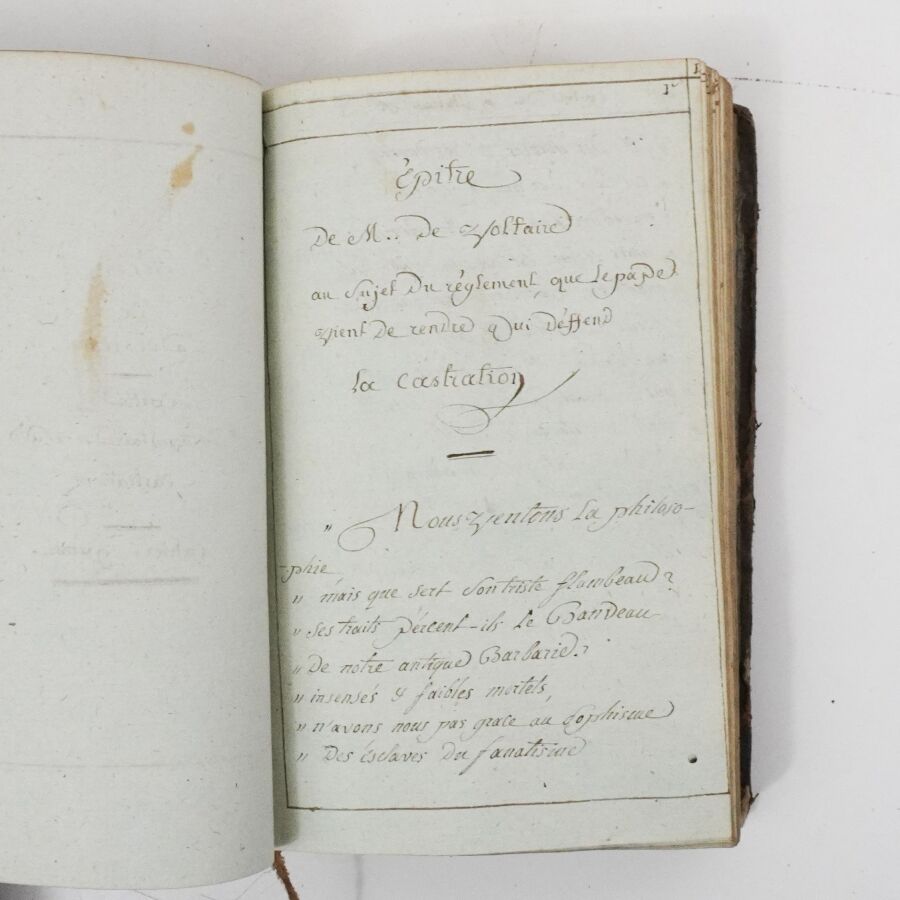 1.
1r
Épitre
De M.. De Voltaire
au Sujet Du réglement, que le pape
vient De rendre qui Déffend
la Castration
" Nous Ventons la philoso-
-phie
" mais que sert Son triste flambeau?
" Ses traits pércent-ils le Bandeau
" De notre antique Barbarie?
" insensés & faibles mortels,
" n'avons nous pas grace au Sophisme
" Des Esclaves Du fanatisme